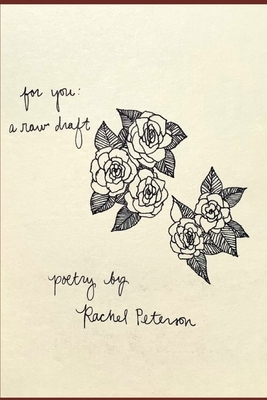 for you:
a raw draft
poetry by
Rachel Peterson